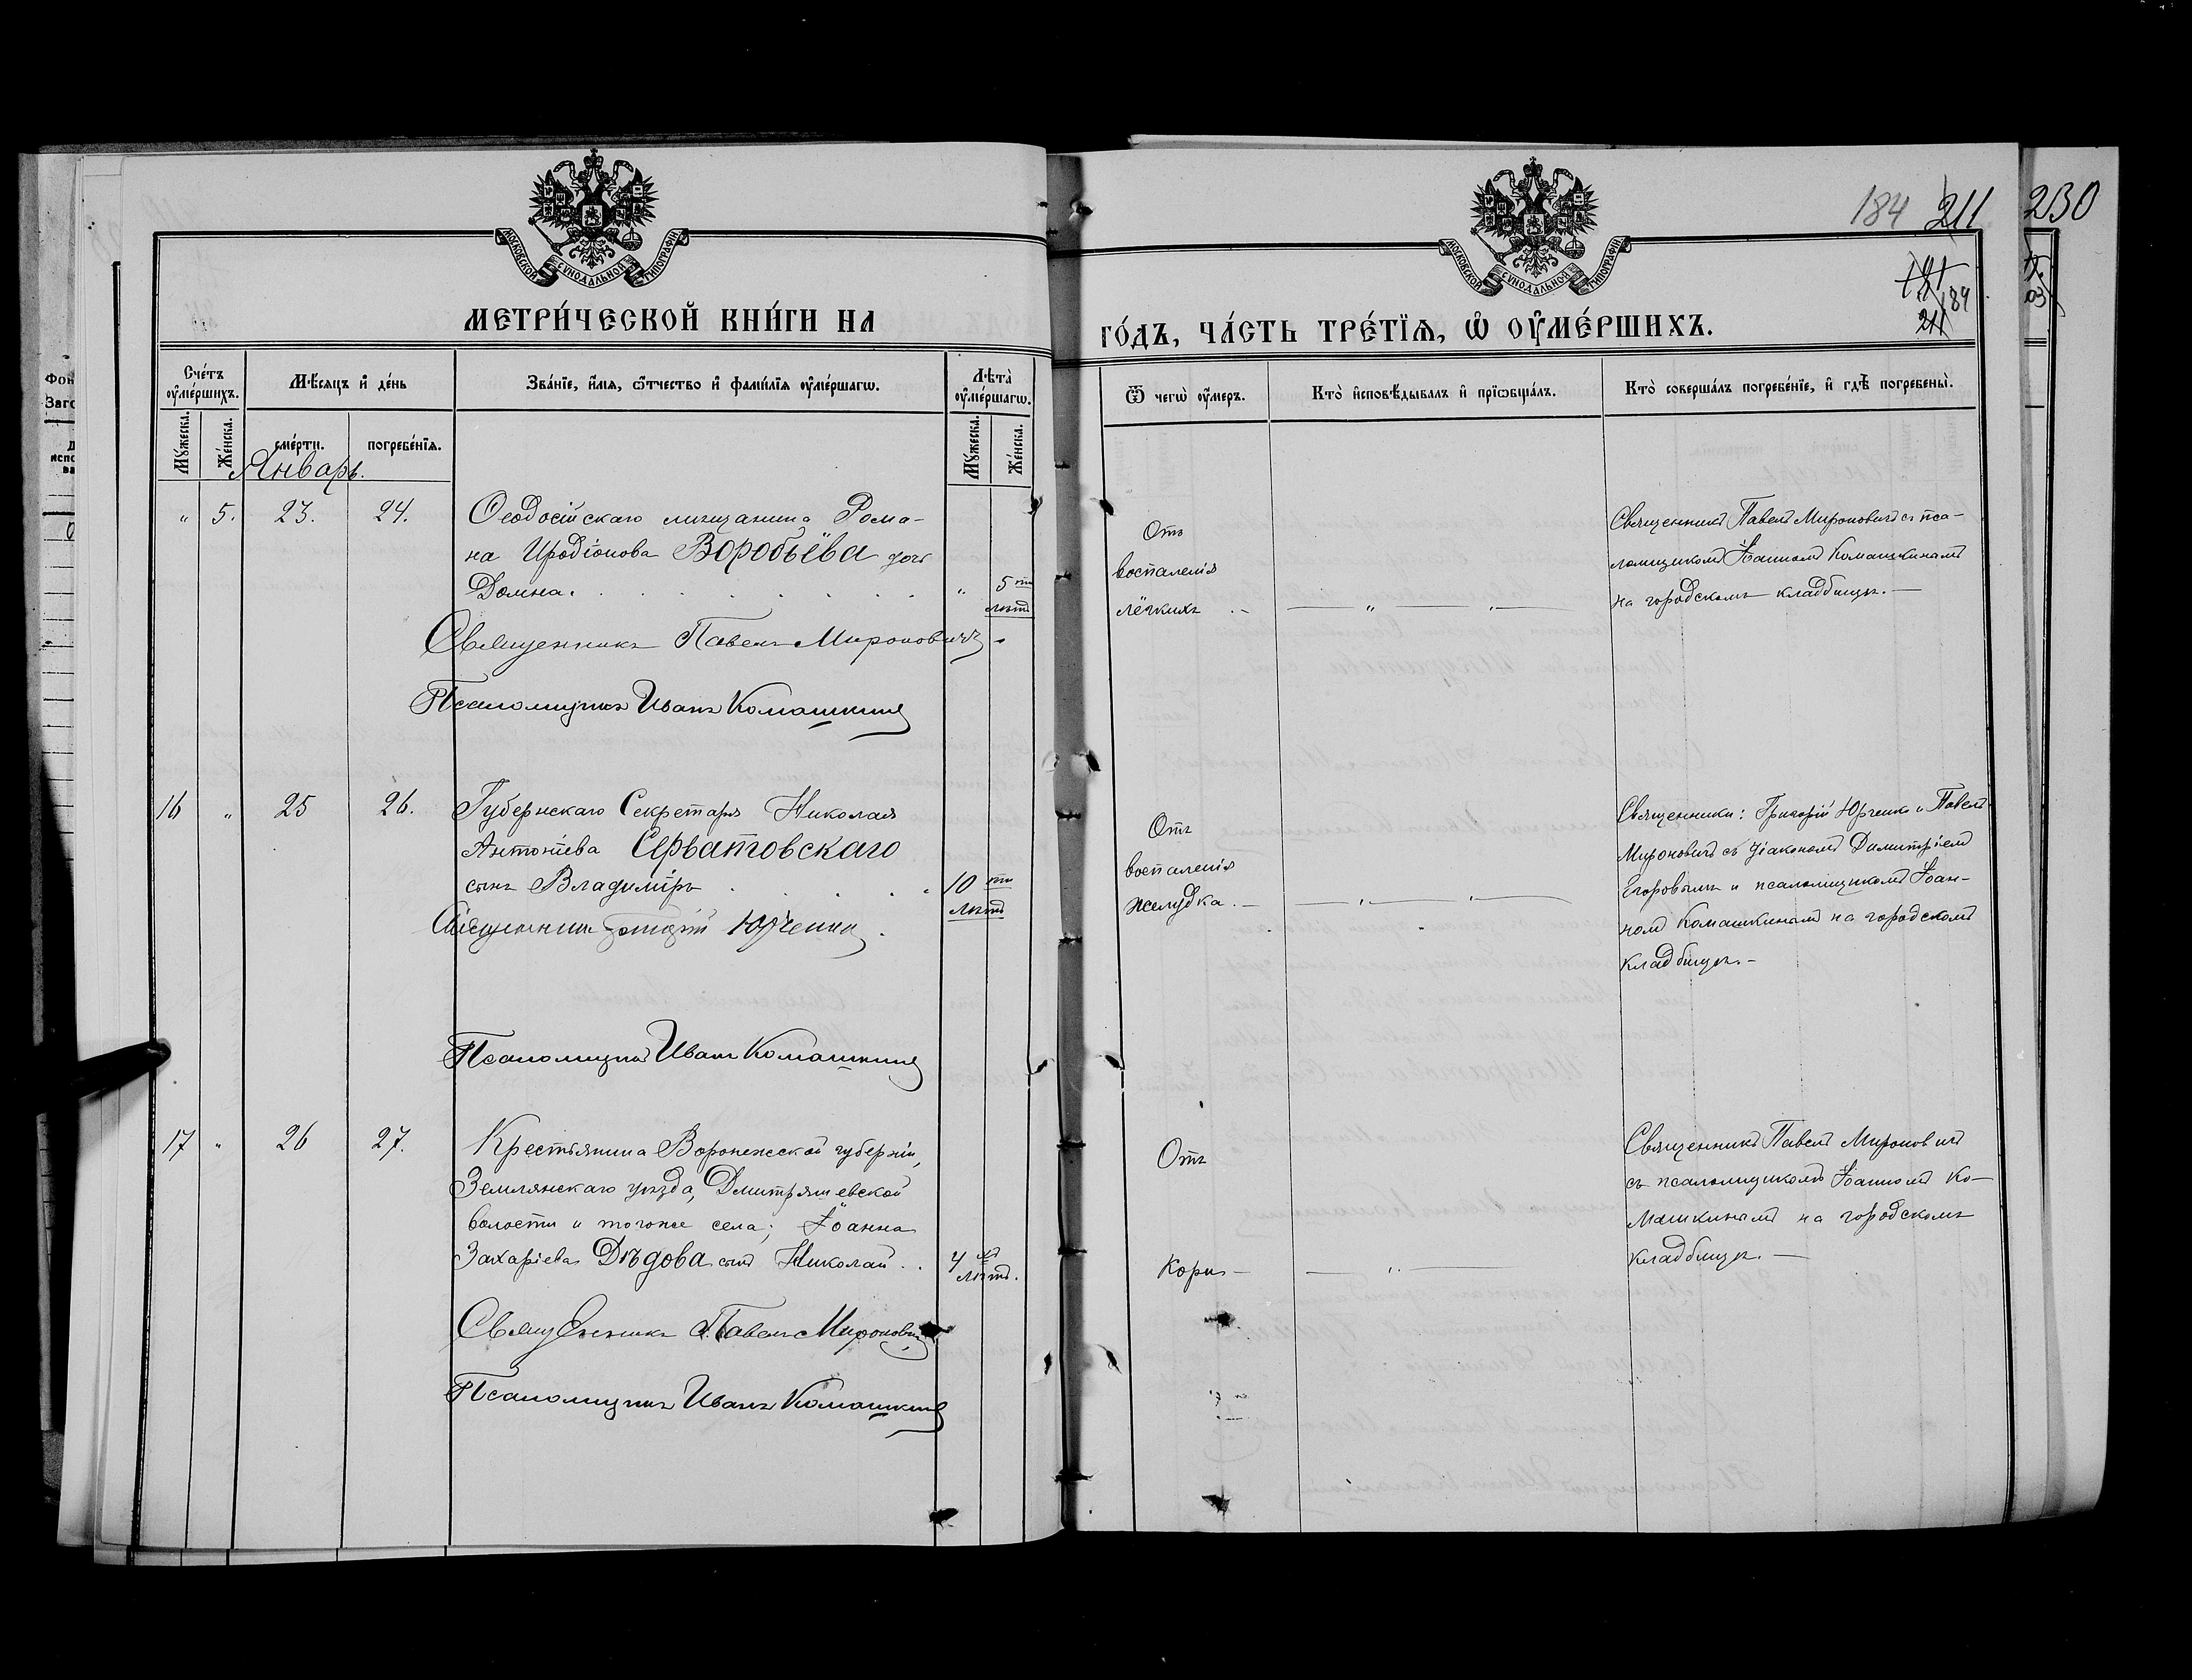 МОСКОВСКОЙ СѴНОДАЛЬНОЙ ТИПОГРАФІИ
МЕТРИ́ЧЕСКОЙ КНИ́ГИ НА
Сче́тъ ᲂу҆ме́ршихъ.
Мѣ́сяцъ и҆ де́нь
Зва́нїе, и҆́мѧ, ѻ҆́тчество и҆ фами́лїѧ ᲂу҆ме́ршагѡ.
Лѣта̀ ᲂу҆ме́ршагѡ.
Мꙋ́жеска.
Же́нска.
сме́рти.
погребе́нїѧ.
Мꙋ́жеска.
Же́нска.
Январь.
" 5. 23. 24.
Ѳеодосійскаго мѣщанина Рома-
на Иродіонова Воробьёва дочь
Домна. " 5 ти
лѣтъ
Священникъ Павелъ Мироновичъ
Псаломщикъ Иванъ Комашкинъ
16 " 25 26.
Губернскаго Секретаря Николая
Антоніева Серватовскаго
сынъ Владиміръ 10 ти
лѣтъ
Священникъ Григорій Юрченко
Псаломщикъ Иванъ Комашкинъ
17 " 26 27.
Крестьянина Воронежской губерніи,
Землянскаго уѣзда, Дмитряшевской
волости и тогоже села; Іоанна
Захаріева Дѣдова сынъ Николай 4 хъ
лѣтъ.
Священникъ Павелъ Мироновичъ
Псаломщикъ Иванъ Комашкинъ
184 211 230
184
211
МОСКОВСКОЙ СѴНОДАЛЬНОЙ ТИПОГРАФІИ
ГО́ДЪ, ЧА́СТЬ ТРЕ́ТЇѦ, Ѡ҆ ОУ҆МЕ́РШИХЪ.
Ѿ чегѡ̀ ᲂу҆́меръ.
Кто̀ и҆сповѣ́дывалъ и҆ прїѡбща́лъ.
Кто̀ соверша́лъ погребе́нїе, и҆ гдѣ̀ погребены̀.
Отъ
воспаленія
лёгкихъ
Священникъ Павелъ Мироновичъ съ пса-
ломщикомъ Іоанномъ Комашкинымъ
на городскомъ кладбищѣ.
Отъ
воспаленія
желудка.
Священники: Григорій Юрченко и Павелъ
Мироновичъ съ діакономъ Димитріемъ
Егоровымъ и псаломщикомъ Іоан-
номъ Комашкинымъ на городскомъ
кладбищѣ.
Отъ
Кори
Священникъ Павелъ Мироновичъ
съ псаломщикомъ Іоанномъ Ко-
машкинымъ на городскомъ
кладбищѣ.